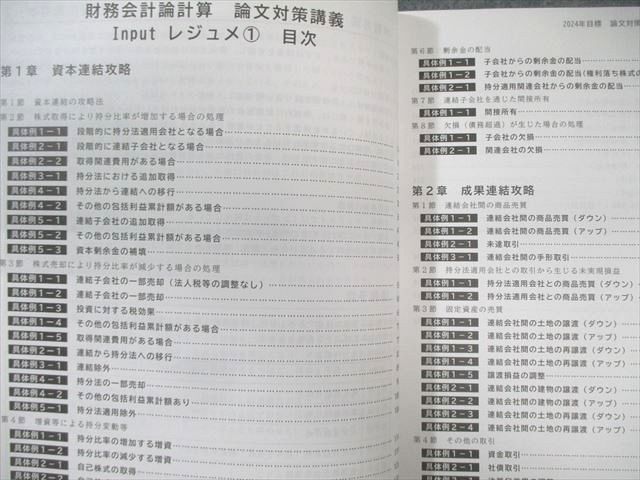 財務会計論計算 論文対策講義
Input レジュメ① 目次
第1章 資本連結攻略
第1節 資本連結の攻略法
第2節 株式取得により持分比率が増加する場合の処理
具体例1-1 段階的に持分法適用会社となる場合
具体例2-1 段階的に連結子会社となる場合
具体例2-2 取得関連費用がある場合
具体例3-1 持分法における追加取得
具体例4-1 持分法から連結への移行
具体例4-2 その他の包括利益累計額がある場合
具体例5-1 連結子会社の追加取得
具体例5-2 その他の包括利益累計額がある場合
具体例5-3 資本剰余金の補填
第3節 株式売却により持分比率が減少する場合の処理
具体例1-1 連結子会社の一部売却(法人税等の調整なし)
具体例1-2 連結子会社の一部売却
具体例1-3 投資に対する税効果
具体例1-4 その他の包括利益累計額がある場合
具体例1-5 取得関連費用がある場合
具体例2-1 連結から持分法への移行
具体例3-1 連結除外
具体例4-1 持分法の一部売却
具体例4-2 その他の包括利益累計額あり
具体例5-1 持分法適用除外
第4節 増資等による持分変動等
具体例1-1 持分比率の増加する増資
具体例1-2 持分比率の減少する増資
具体例2-1 自己株式の取得
2024年目標 論文対策
第6節 剰余金の配当
具体例1-1 子会社からの剰余金の配当
具体例1-2 子会社からの剰余金の配当(権利落ち株式の
具体例2-1 持分法適用関連会社からの剰余金の配当
第7節 連結子会社を通じた間接所有
具体例1-1 間接所有
第8節 欠損(債務超過)が生じた場合の処理
具体例1-1 子会社の欠損
具体例2-1 関連会社の欠損
第2章 成果連結攻略
第1節 連結会社間の商品売買
具体例1-1 連結会社間の商品売買(ダウン)
具体例1-2 連結会社間の商品売買(アップ)
具体例2-1 未達取引
具体例3-1 連結会社間の手形取引
第2節 持分法適用会社との取引から生じる未実現損益
具体例1-1 持分法適用会社との商品売買(ダウン)
具体例1-2 持分法適用会社との商品売買(アップ)
第3節 固定資産の売買
具体例1-1 連結会社間の土地の譲渡(ダウン)
具体例1-2 連結会社間の土地の譲渡(アップ)
具体例1-3 連結会社間の土地の再譲渡(ダウン)
具体例1-4 連結会社間の土地の再譲渡(アップ)
具体例1-5 譲渡損益の調整
具体例2-1 連結会社間の建物の譲渡(ダウン)
具体例2-2 連結会社間の建物の譲渡(アップ)
具体例2-3 連結会社間の土地の再譲渡(ダウン)
具体例2-4 連結会社間の土地の再譲渡(アップ)
第4節 その他の取引
具体例1-1 資金取引
具体例2-1 社債取引